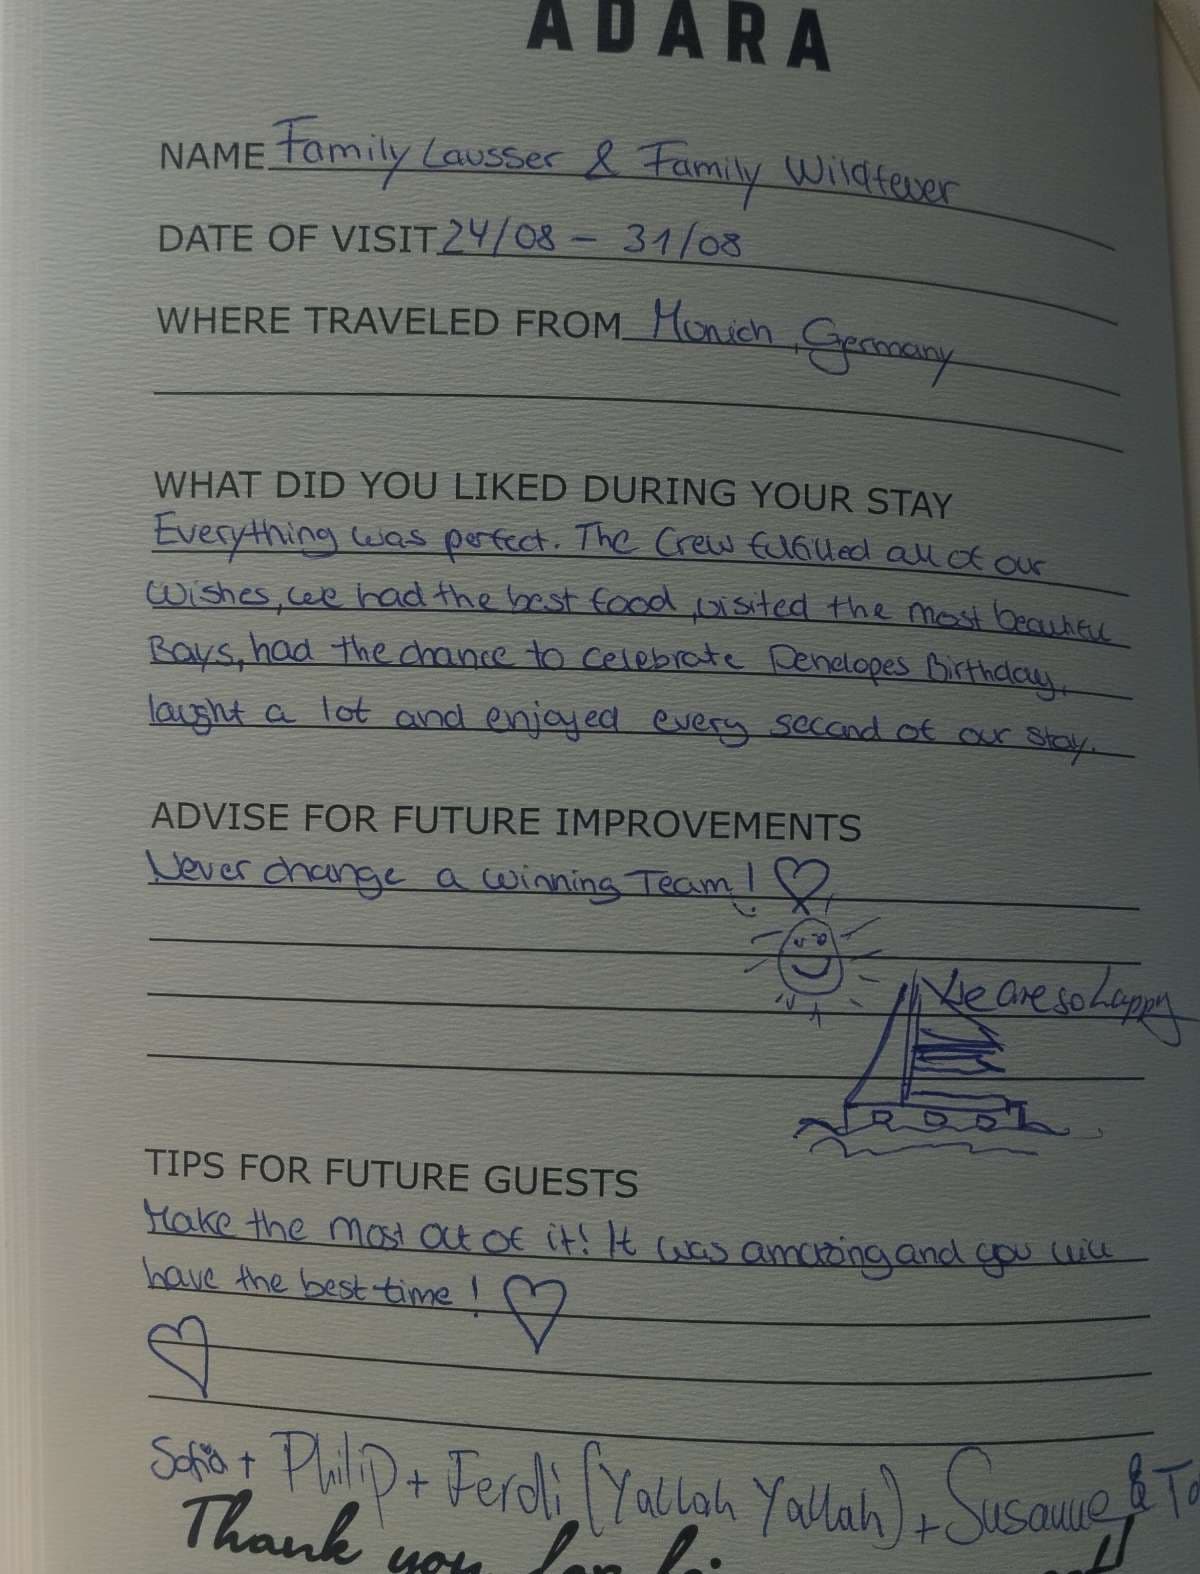 ADARA
NAME Family Lausser & Family Wildfever
DATE OF VISIT 24/08 – 31/08
WHERE TRAVELED FROM Munich, Germany
WHAT DID YOU LIKED DURING YOUR STAY
Everything was perfect. The Crew fulfilled all of our
wishes, we had the best food, visited the most beautiful
Bays, had the chance to celebrate Penelopes Birthday,
laught a lot and enjoyed every second of our stay.
ADVISE FOR FUTURE IMPROVEMENTS
Never change a winning Team!
We are so happy
TIPS FOR FUTURE GUESTS
Make the most out of it! It was amazing and you will
have the best time!
Sofia + Philip + Ferdi (Yallah Yallah) + Susanne &
Thank you for